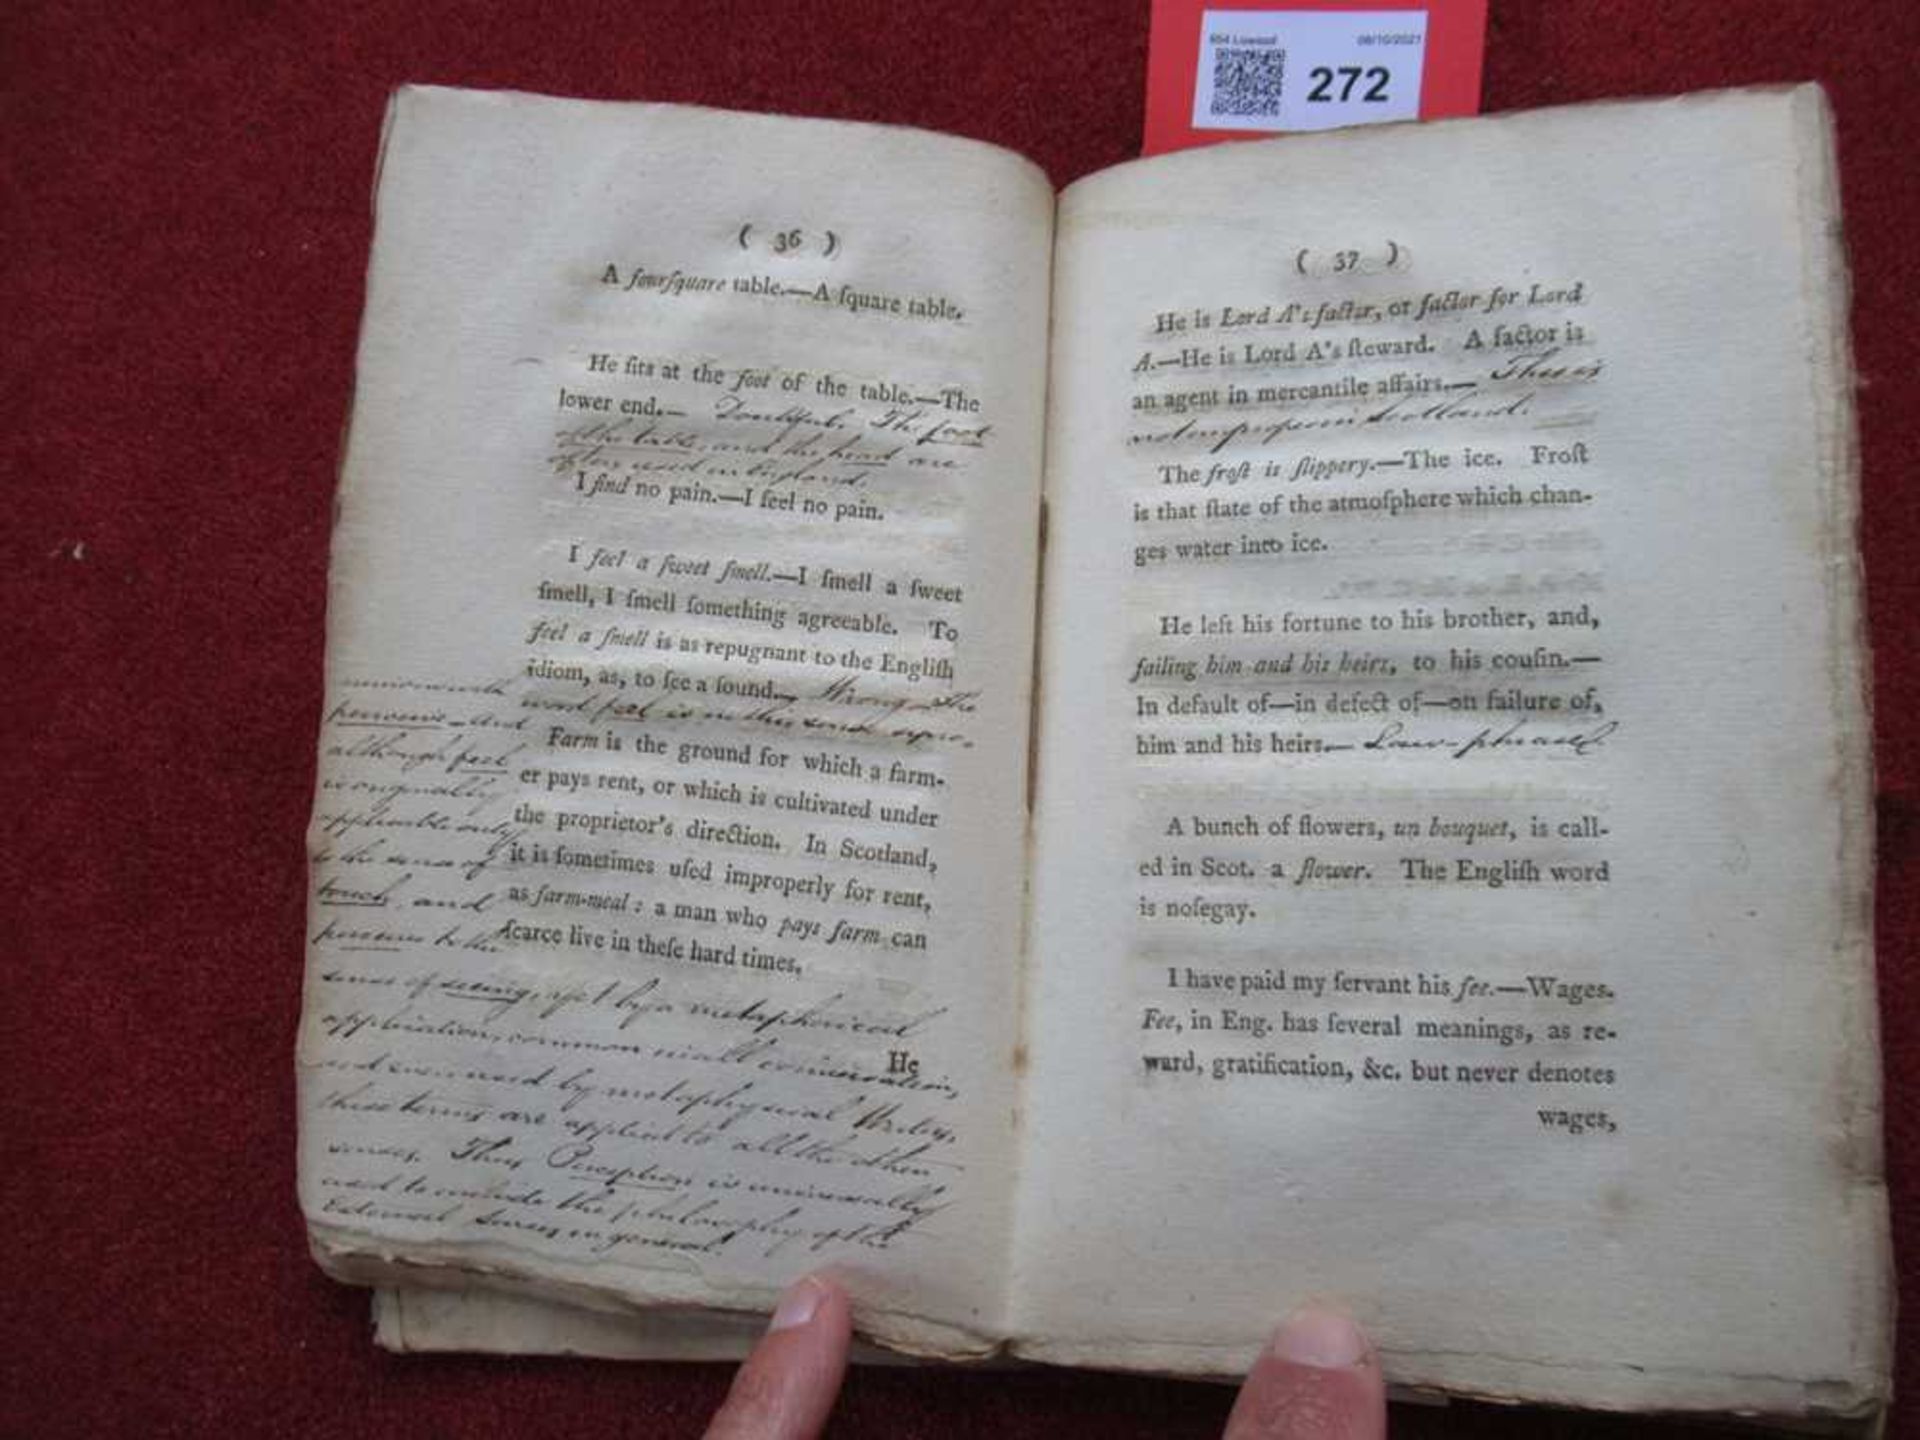 272
( 36 )
A fourſquare table.—A ſquare table.
He ſits at the foot of the table.—The
lower end.— Doubtful. The foot
of the table, and the head are
often used in England.
I find no pain.—I feel no pain.
I feel a ſweet ſmell.—I ſmell a ſweet
ſmell, I ſmell ſomething agreeable. To
feel a ſmell is as repugnant to the Engliſh
idiom, as, to ſee a ſound.— Wrong—The
word feel is in this sense syno-
Farm is the ground for which a farm-
er pays rent, or which is cultivated under
the proprietor's direction. In Scotland,
it is ſometimes uſed improperly for rent,
as farm-meal: a man who pays farm can
ſcarce live in theſe hard times.
with
perceive—and
although feel
is originally
applicable only
to the sense of
touch, and
perceive to the
sense of seeing, yet by a metaphorical
application, common in all conversation,
and even used by metaphysical Writers,
these terms are applied to all the other
senses. Thus Perception is universally
used to include the philosophy of the
External Senses in general.
He
( 37 )
He is Lord A's factor, or factor for Lord
A.—He is Lord A's ſteward. A factor is
an agent in mercantile affairs.— This is
not improper in Scotland.
The froſt is ſlippery.—The ice. Froſt
is that ſtate of the atmoſphere which chan-
ges water into ice.
He left his fortune to his brother, and,
failing him and his heirs, to his couſin.—
In default of—in defect of—on failure of,
him and his heirs.— Law-phrase.
A bunch of flowers, un bouquet, is call-
ed in Scot. a flower. The Engliſh word
is noſegay.
I have paid my ſervant his fee.—Wages.
Fee, in Eng. has ſeveral meanings, as re-
ward, gratification, &c. but never denotes
wages,